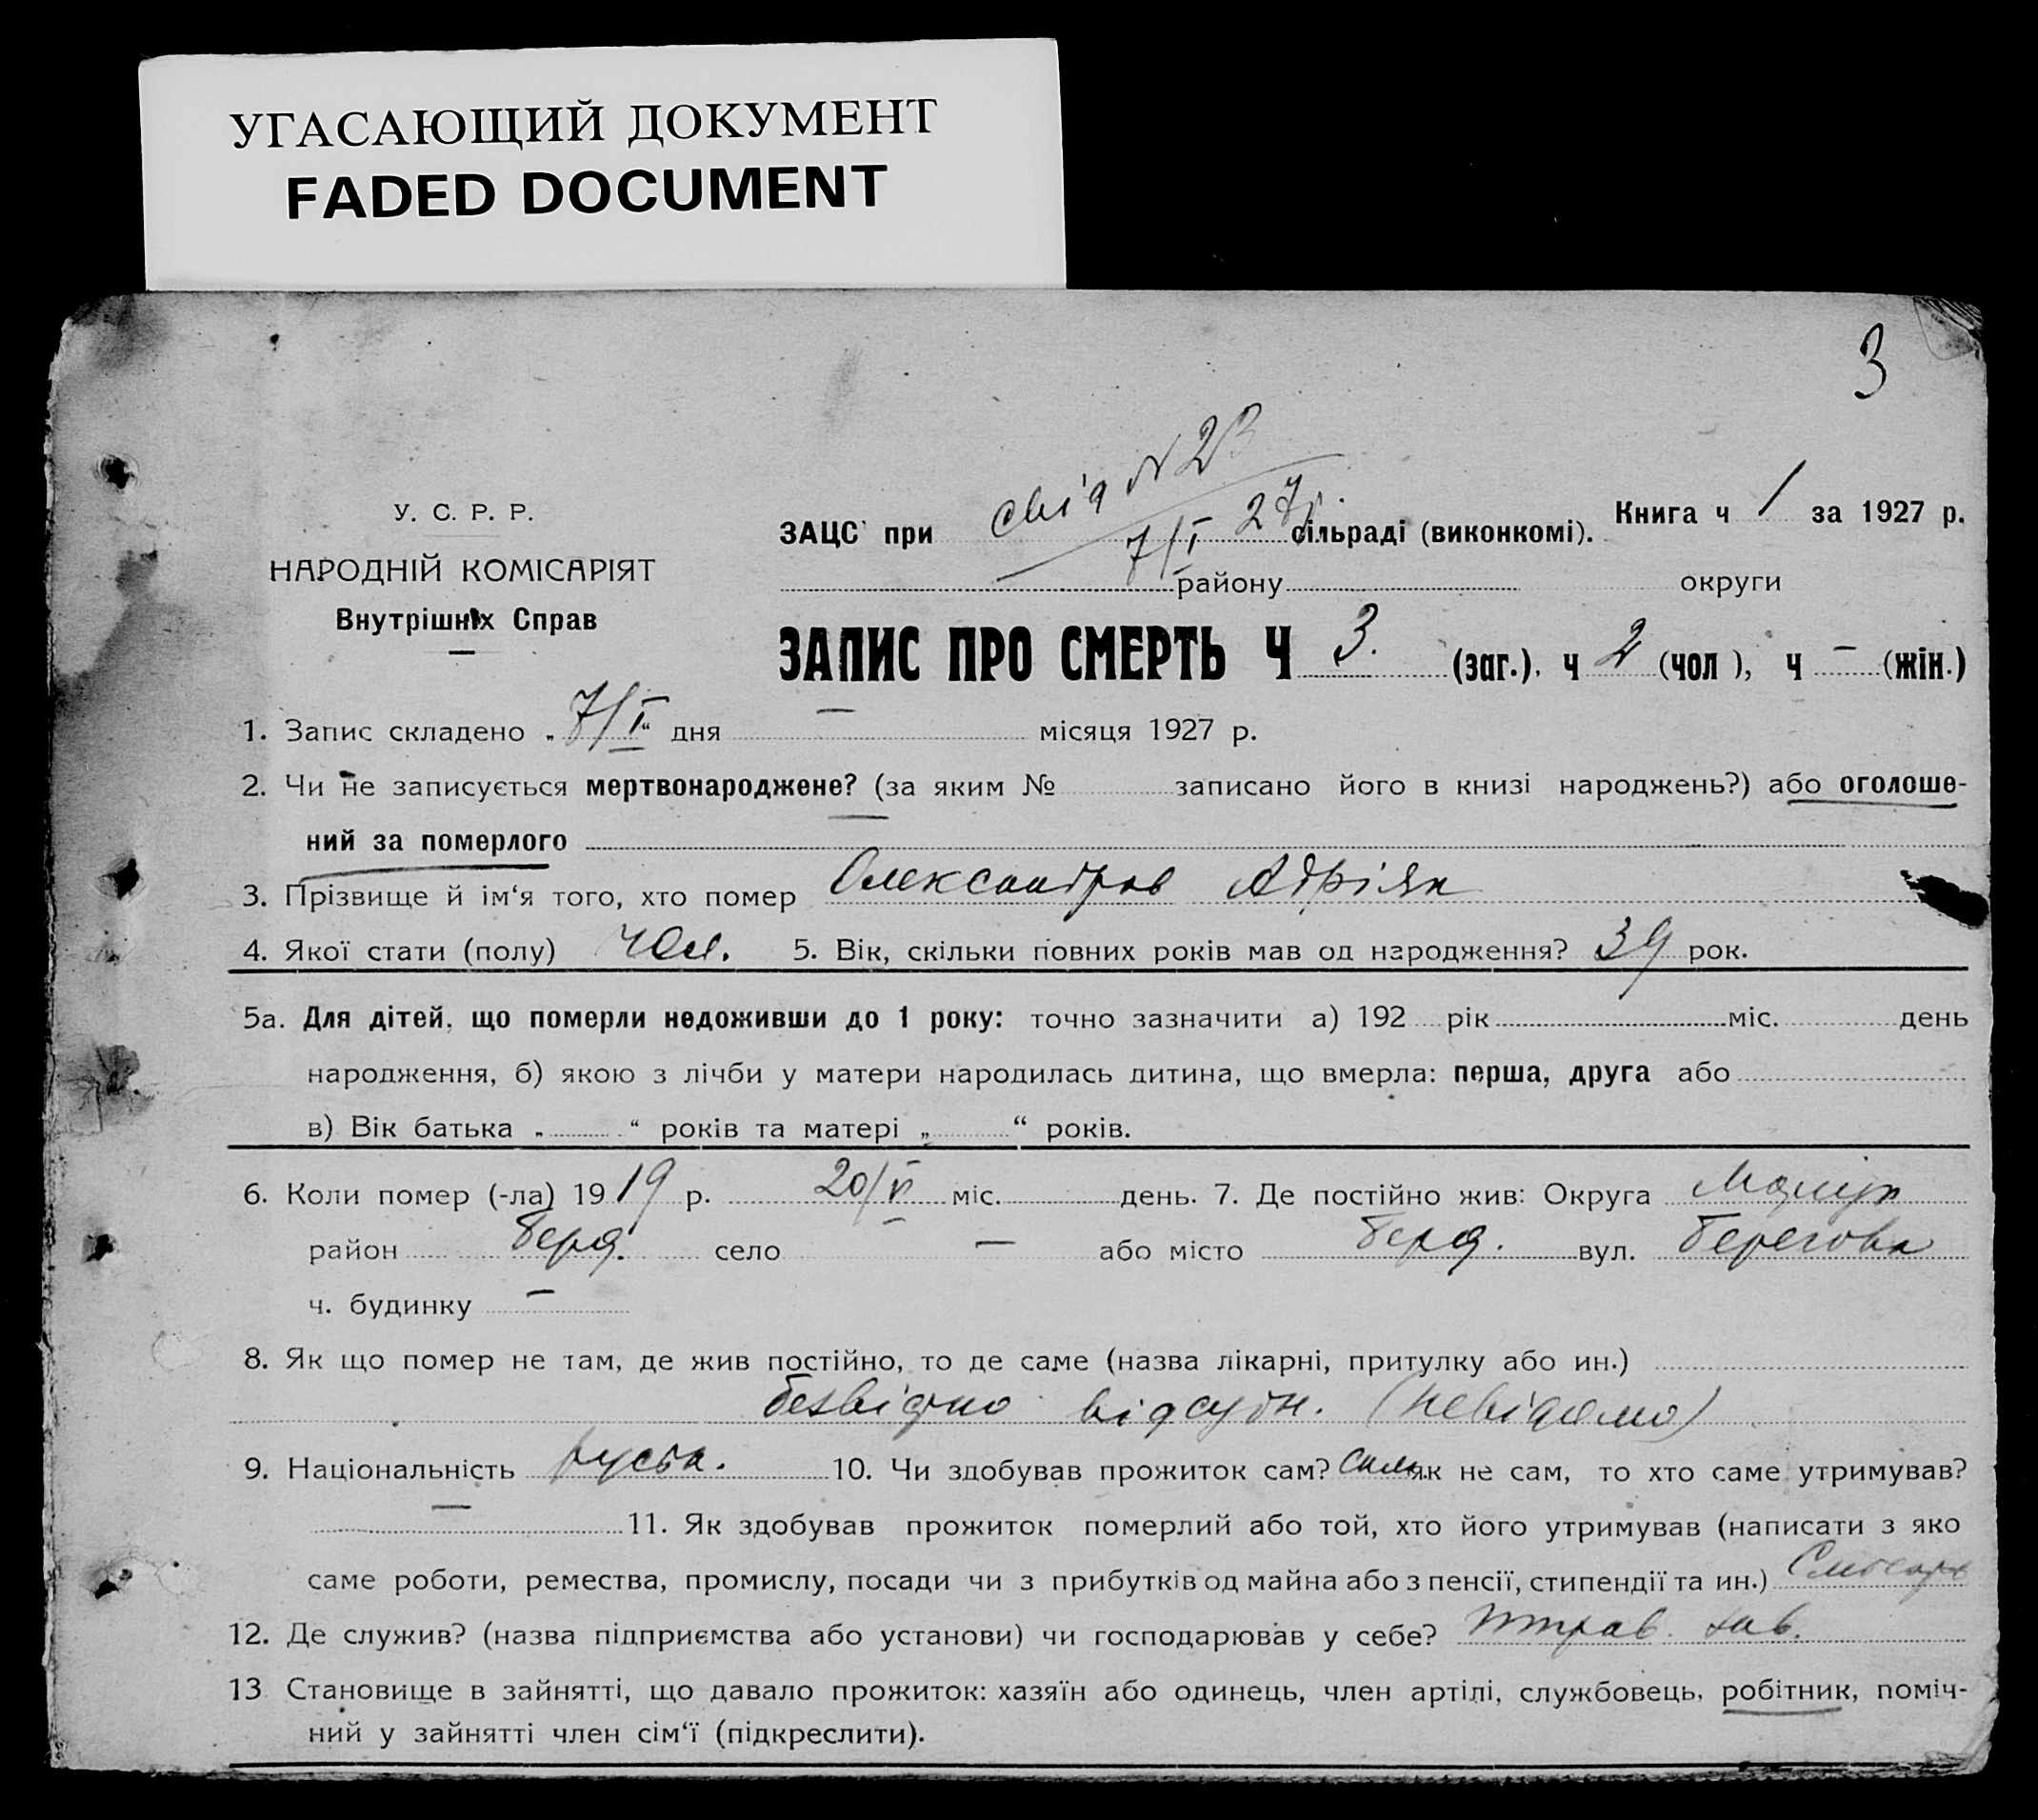 УГАСАЮЩИЙ ДОКУМЕНТ
FADED DOCUMENT
3
У. С. Р. Р.
НАРОДНІЙ КОМІСАРІЯТ
Внутрішніх Справ
свід N 23
7/I 27р.
ЗАЦС при сільраді (виконкомі).
Книга ч 1 за 1927 р.
району округи
ЗАПИС ПРО СМЕРТЬ Ч 3. (заг.). ч 2 (чол ), ч – (жін.)
1. Запис складено „ 7/I “ дня — місяця 1927 р.
2. Чи не записується мертвонароджене? (за яким № записано його в книзі народжень?) або оголоше-
ний за померлого —
3. Прізвище й ім‘я того, хто помер Олександров Адріян
4. Якої стати (полу) чол. 5. Вік, скільки повних років мав од народження? 39 рок.
5а. Для дітей, що померли недоживши до 1 року: точно зазначити а) 192 рік міс. день
народження, б) якою з лічби у матери народилась дитина, що вмерла: перша, друга або
в) Вік батька „ “ років та матері „ “ років.
6. Коли помер (-ла) 19 19 р. 20/VI міс. день. 7. Де постійно жив: Округа
район Берд. село — або місто Берд. вул. Берегова
ч. будинку —
8. Як що помер не там, де жив постійно, то де саме (назва лікарні, притулку або ин.)
безвісно відсутн. (невідомо)
9. Національність руськ. 10. Чи здобував прожиток сам? Сам як не сам, то хто саме утримував?
— 11. Як здобував прожиток померлий або той, хто його утримував (написати з яко
саме роботи, ремества, промислу, посади чи з прибутків од майна або з пенсії, стипендії та ин.) Слюсарь
12. Де служив? (назва підприємства або установи) чи господарював у себе? зав.
13 Становище в зайнятті, що давало прожиток: хазяїн або одинець, член артілі, службовець, робітник, поміч-
ний у зайнятті член сім‘ї (підкреслити).